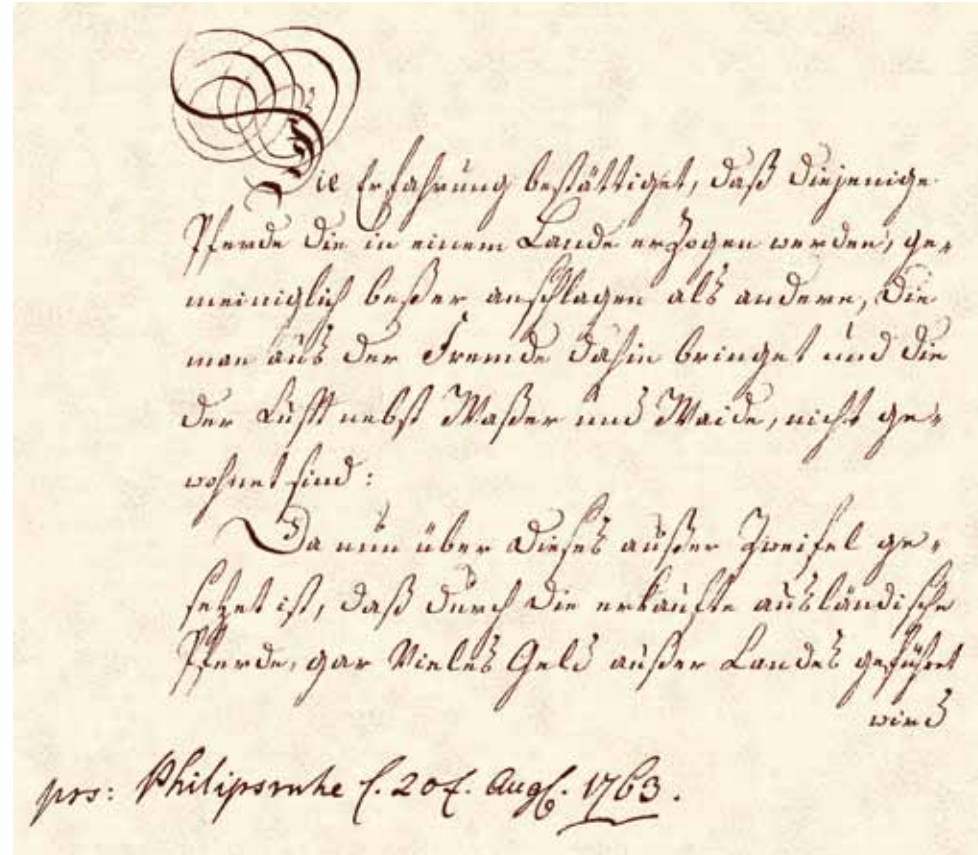 Die Erfahrung bestättiget, daß diejenige
Pferde die in einem Lande erzogen werden, ge-
meiniglich beßer anschlagen als andere, die
man aus der Fremde dahin bringet und die
der Lufft nebst Waßer und Waide, nicht ge-
wohnet sind:
Da nun über dieses außer Zweifel ge-
setzet ist, daß durch die erkaufte ausländische
Pferde, gar Vieles Geld außer Landes geführet
wird
prs: Philipsruhe d. 20t. Aug. 1763.